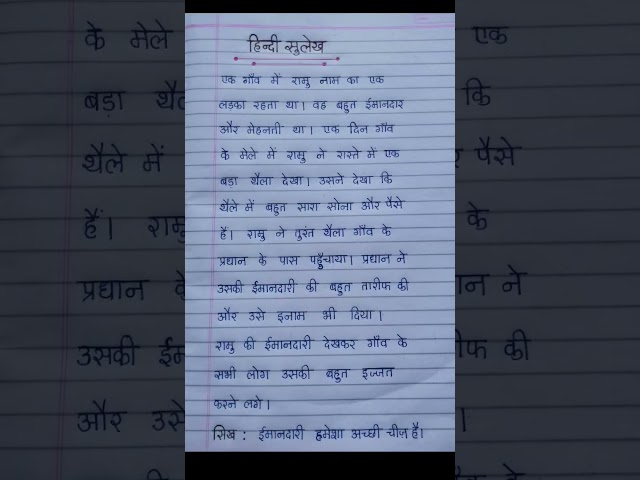 हिन्दी सुलेख
एक गाँव में रामु नाम का एक
लड़का रहता था। वह बहुत ईमानदार
और मेहनती था। एक दिन गाँव
के मेले में रामु ने रास्ते में एक
बड़ा थैला देखा। उसने देखा कि
थैले में बहुत सारा सोना और पैसे
हैं। रामु ने तुरंत थैला गाँव के
प्रधान के पास पहुँचाया। प्रधान ने
उसकी ईमानदारी की बहुत तारीफ की
और उसे इनाम भी दिया।
रामु की ईमानदारी देखकर गाँव के
सभी लोग उसकी बहुत इज्जत
करने लगे।
सिख : ईमानदारी हमेशा अच्छी चीज़ है।